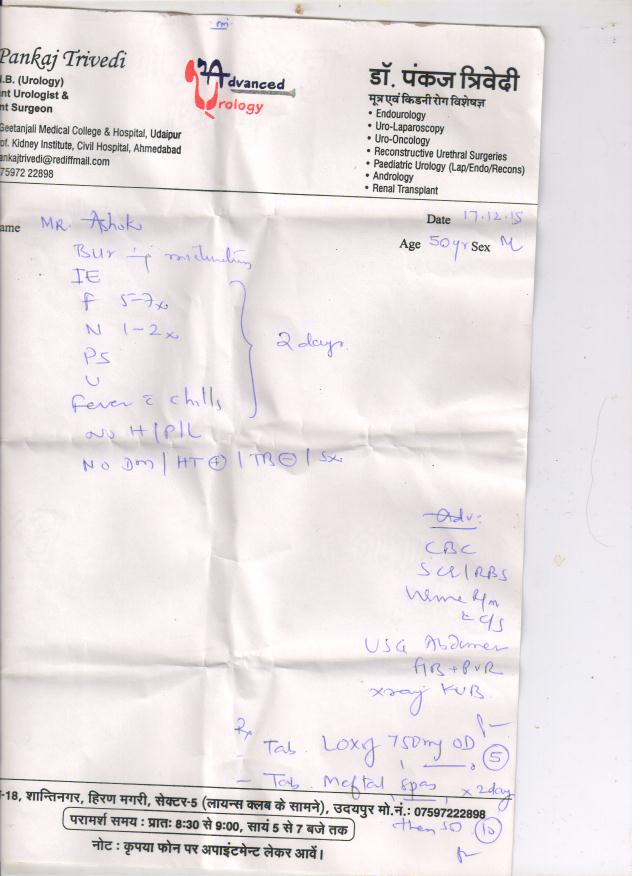 Pankaj Trivedi
.B. (Urology)
nt Urologist &
nt Surgeon
Geetanjali Medical College & Hospital, Udaipur
of. Kidney Institute, Civil Hospital, Ahmedabad
ankajtrivedi@rediffmail.com
75972 22898
Advanced
Urology
डॉ. पंकज त्रिवेदी
मूत्र एवं किडनी रोग विशेषज्ञ
• Endourology
• Uro-Laparoscopy
• Uro-Oncology
• Reconstructive Urethral Surgeries
• Paediatric Urology (Lap/Endo/Recons)
• Andrology
• Renal Transplant
ame MR. Ashok
Date 17.12.15
Age 50yr Sex M
micturition
IE
F 5-7x
N 1-2x
PS
U
2 days
Fever c chills
No H/P/L
No Dm / HT + / TB - / Sx
Adv:
CBC
S Cr / RBS
Urine R/m
c c/s
USG Abdomen
+ PVR
xray KUB
Rx
- Tab. Loxof 750mg OD 5
- Tab. Meftal spas x 2day
then SOS 10
-18, शान्तिनगर, हिरण मगरी, सेक्टर-5 (लायन्स क्लब के सामने), उदयपुर मो.नं.: 07597222898
परामर्श समय : प्रातः 8:30 से 9:00, सायं 5 से 7 बजे तक
नोट : कृपया फोन पर अपाइंटमेन्ट लेकर आवें।